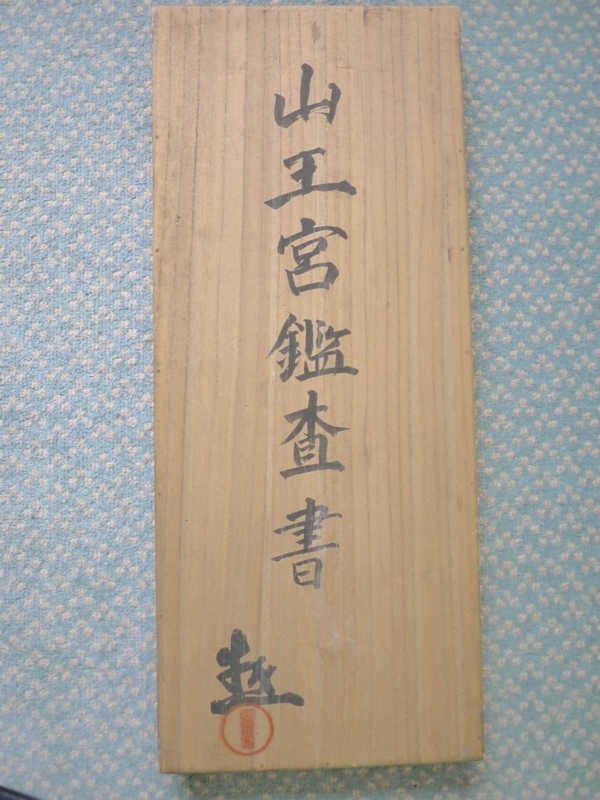 山王宮鑑査書